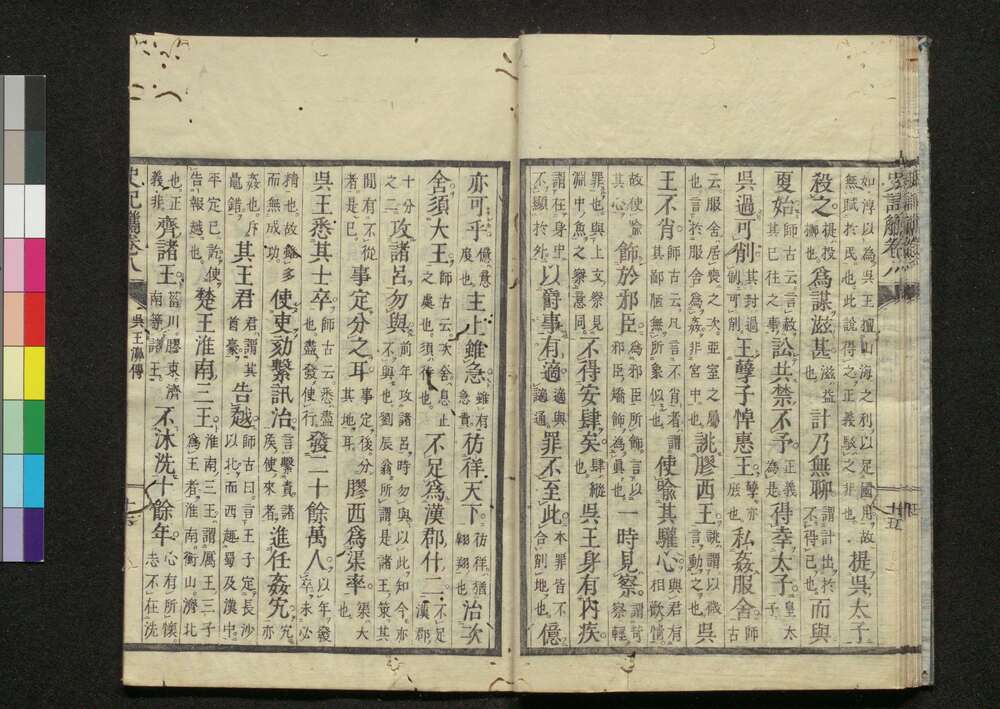 史記觿卷八
如淳以為吳王擅山海之利以足國用故無賦於民也此說得之正義駁之非也 提吳太子
殺之 提投擲也 為謀滋甚 滋益也 計乃無聊 謂計出於不得已也 而與
夏始 師古云言赦其已往之事 訟共禁不予 正義為是 得幸太子 皇太子
吳過可削 其封過制可削 王孽子悼惠王 孽亦庶也 私姦服舍 師古
云服舍居喪之次堊室之屬也言於服舍為姦非宮中也 誂膠西王 誂謂以微言動之也 吳
王不肖 師古云凡言不肖者謂其鄙陋無所象似也 使喻其驩心 與君有相歡情
故使喻其心 飾於邪臣 為邪臣所飾言以邪臣矯飾為真也 一時見察 謂苛察輕
罪也與上文察見淵中魚之察意同 不得安肆矣 肆縱也 吳王身有內疾
謂在身中不顯於外 以爵事有適 適與謫通 罪不至此 本罪皆不合削地也 億
亦可乎 億意度也 主上雖急 雖有急責 彷徉天下 彷徉猶翱翔也 治次
舍須大王 師古云次舍息止之處也須待也 不足為漢郡什二 不足漢郡
十分之二 攻諸呂勿與 前年攻諸呂時勿與以此知今亦不與也劉辰翁所謂是諸王策其
間有不從者是已 事定分之耳 事定後分其地耳 膠西為渠率 渠大也
吳王悉其士卒 師古云悉盡也盡發使行 發二十餘萬人 以年發卒未必
精也故雖多而無成功 使吏劾繫訊治 言繫責諸侯使來者 進任姦宄 宄亦
姦也斥鼂錯 其王君 君謂其首豪 告越 師古曰言王子定長沙以北而西趣蜀及漢中
平定已訖使告報越也 楚王淮南三王 淮南三王謂厲王三子為王者淮南衡山濟北
也正義非 齊諸王 菑川膠東濟南等諸王 不沐洗十餘年 心有所懷志不在洗
史記觿卷八 吳王濞傳